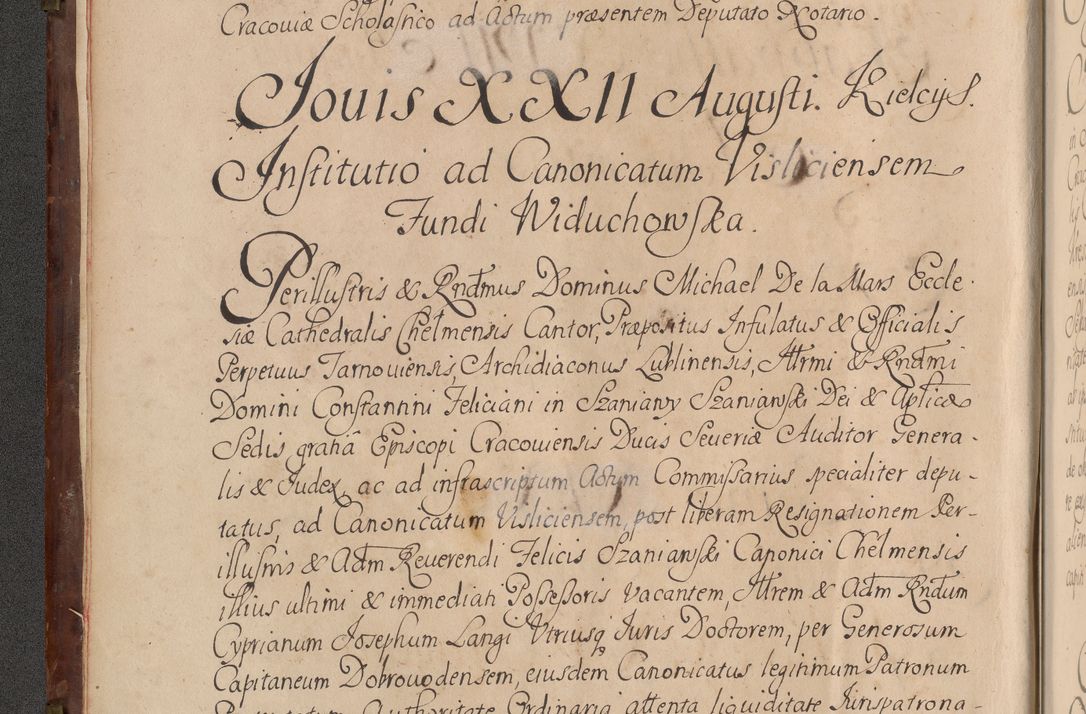 Cracoviæ Scholastico ad Actum præsentem Deputato Notario.
Jouis XXII Augusti. Kielcijs.
Institutio ad Canonicatum Visliciensem
Fundi Widuchowska.
Perillustris & Rndmus Dominus Michael De la Mars Eccle-
siæ Cathedralis Chelmensis Cantor, Præpositus Infulatus & Officialis
Perpetuus Tarnouiensis, Archidiaconus Lublinensis, Illrmi & Rndmi
Domini Constantini Feliciani in Szaniawy Szaniawski Dei & Aplicæ
Sedis gratiâ Episcopi Cracouiensis Ducis Seueriæ Auditor Genera-
lis & Judex, ac ad infrascriptum Actum Commissarius specialiter depu-
tatus, ad Canonicatum Visliciensem, post liberam Resignationem Per-
illustris & Adm Reuerendi Felicis Szaniawski Canonici Chelmensis
illius ultimi & immediati Possessoris vacantem, Illrem & Adm Rndum
Cyprianum Josephum Langi Vtriusq Juris Doctorem, per Generosum
Capitaneum Dobrouodensem, eiusdem Canonicatus legitimum Patronum
Authoritate Ordinaria attenta liquiditate Jurispatrona-